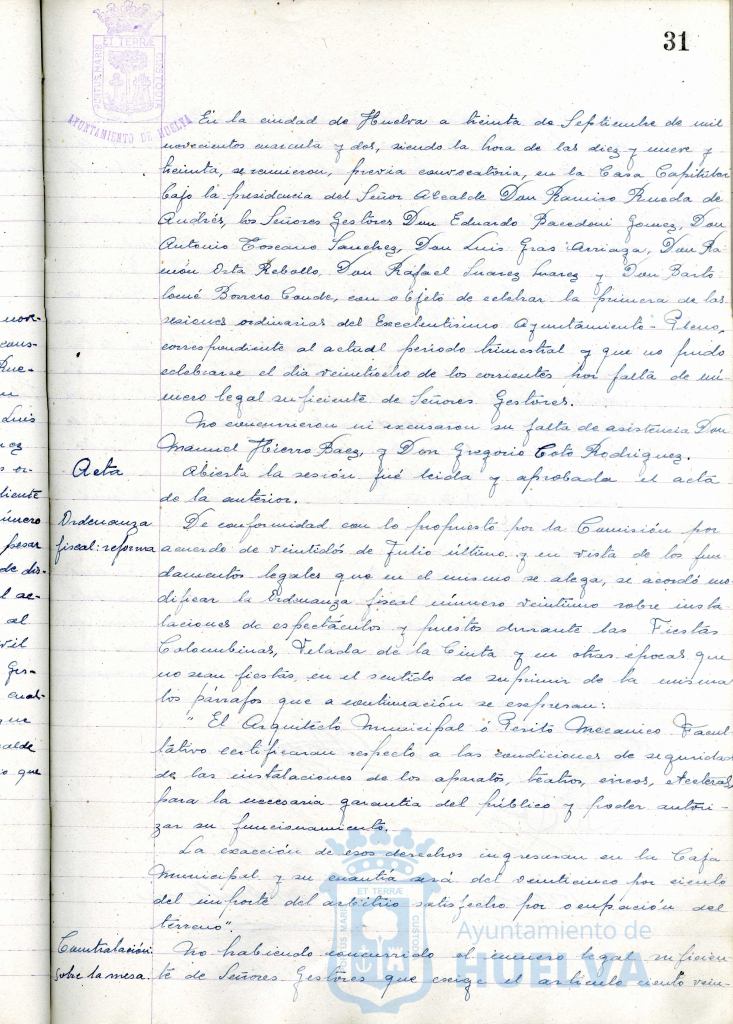 31
PORTUS MARIS ET TERRÆ CUSTODIA
AYUNTAMIENTO DE HUELVA
En la ciudad de Huelva a treinta de Septiembre de mil
novecientos cuarenta y dos, siendo la hora de las diez y nueve y
treinta, se reunieron, previa convocatoria, en la Casa Capitular
bajo la presidencia del Señor Alcalde Don Ramiro Rueda de
Andrés, los Señores Gestores Don Eduardo Bacedoni Gomez, Don
Antonio Toscano Sanchez, Don Luis Gras Arriaga, Don Ra-
món Orta Rebollo, Don Rafael Suarez Suarez y Don Barto
lomé Borrero Conde, con objeto de celebrar la primera de las
sesiones ordinarias del Excelentísimo Ayuntamiento-Pleno,
correspondiente al actual periodo trimestral y que no pudo
celebrarse el dia veintiocho de los corrientes por falta de nú-
mero legal suficiente de Señores Gestores.
No concurrieron ni excusaron su falta de asistencia Don
Manuel Hierro Baez, y Don Gregorio Coto Rodriguez.
Acta
Abierta la sesión fué leida y aprobada el acta
de la anterior.
Ordenanza
fiscal: reforma
De conformidad con lo propuesto por la Comisión por
acuerdo de veintidós de Julio último y en vista de los fun-
damentos legales que en el mismo se alega, se acordó mo
dificar la Ordenanza fiscal número veintiuno sobre insta
laciones de espectáculos y puestos durante las Fiestas
Colombinas, Velada de la Cinta y en otras épocas que
no sean fiestas, en el sentido de suprimir de la misma
los párrafos que a continuación se expresan:
"El Arquitecto Municipal o Perito Mecanico Facul
tativo certificaran respecto a las condiciones de seguridad
de las instalaciones de los aparatos, teatros, circos, etcetera,
para la necesaria garantia del público y poder autori-
zar su funcionamiento.
La exacción de esos derechos ingresaran en la Caja
Municipal y su cuantia será del veinticinco por ciento
del importe del arbitrio satisfecho por ocupación del
terreno".
Contratación:
sobre la mesa.
No habiendo concurrido el número legal suficien-
te de Señores Gestores que exige el articulo ciento vein-
Ayuntamiento de
HUELVA